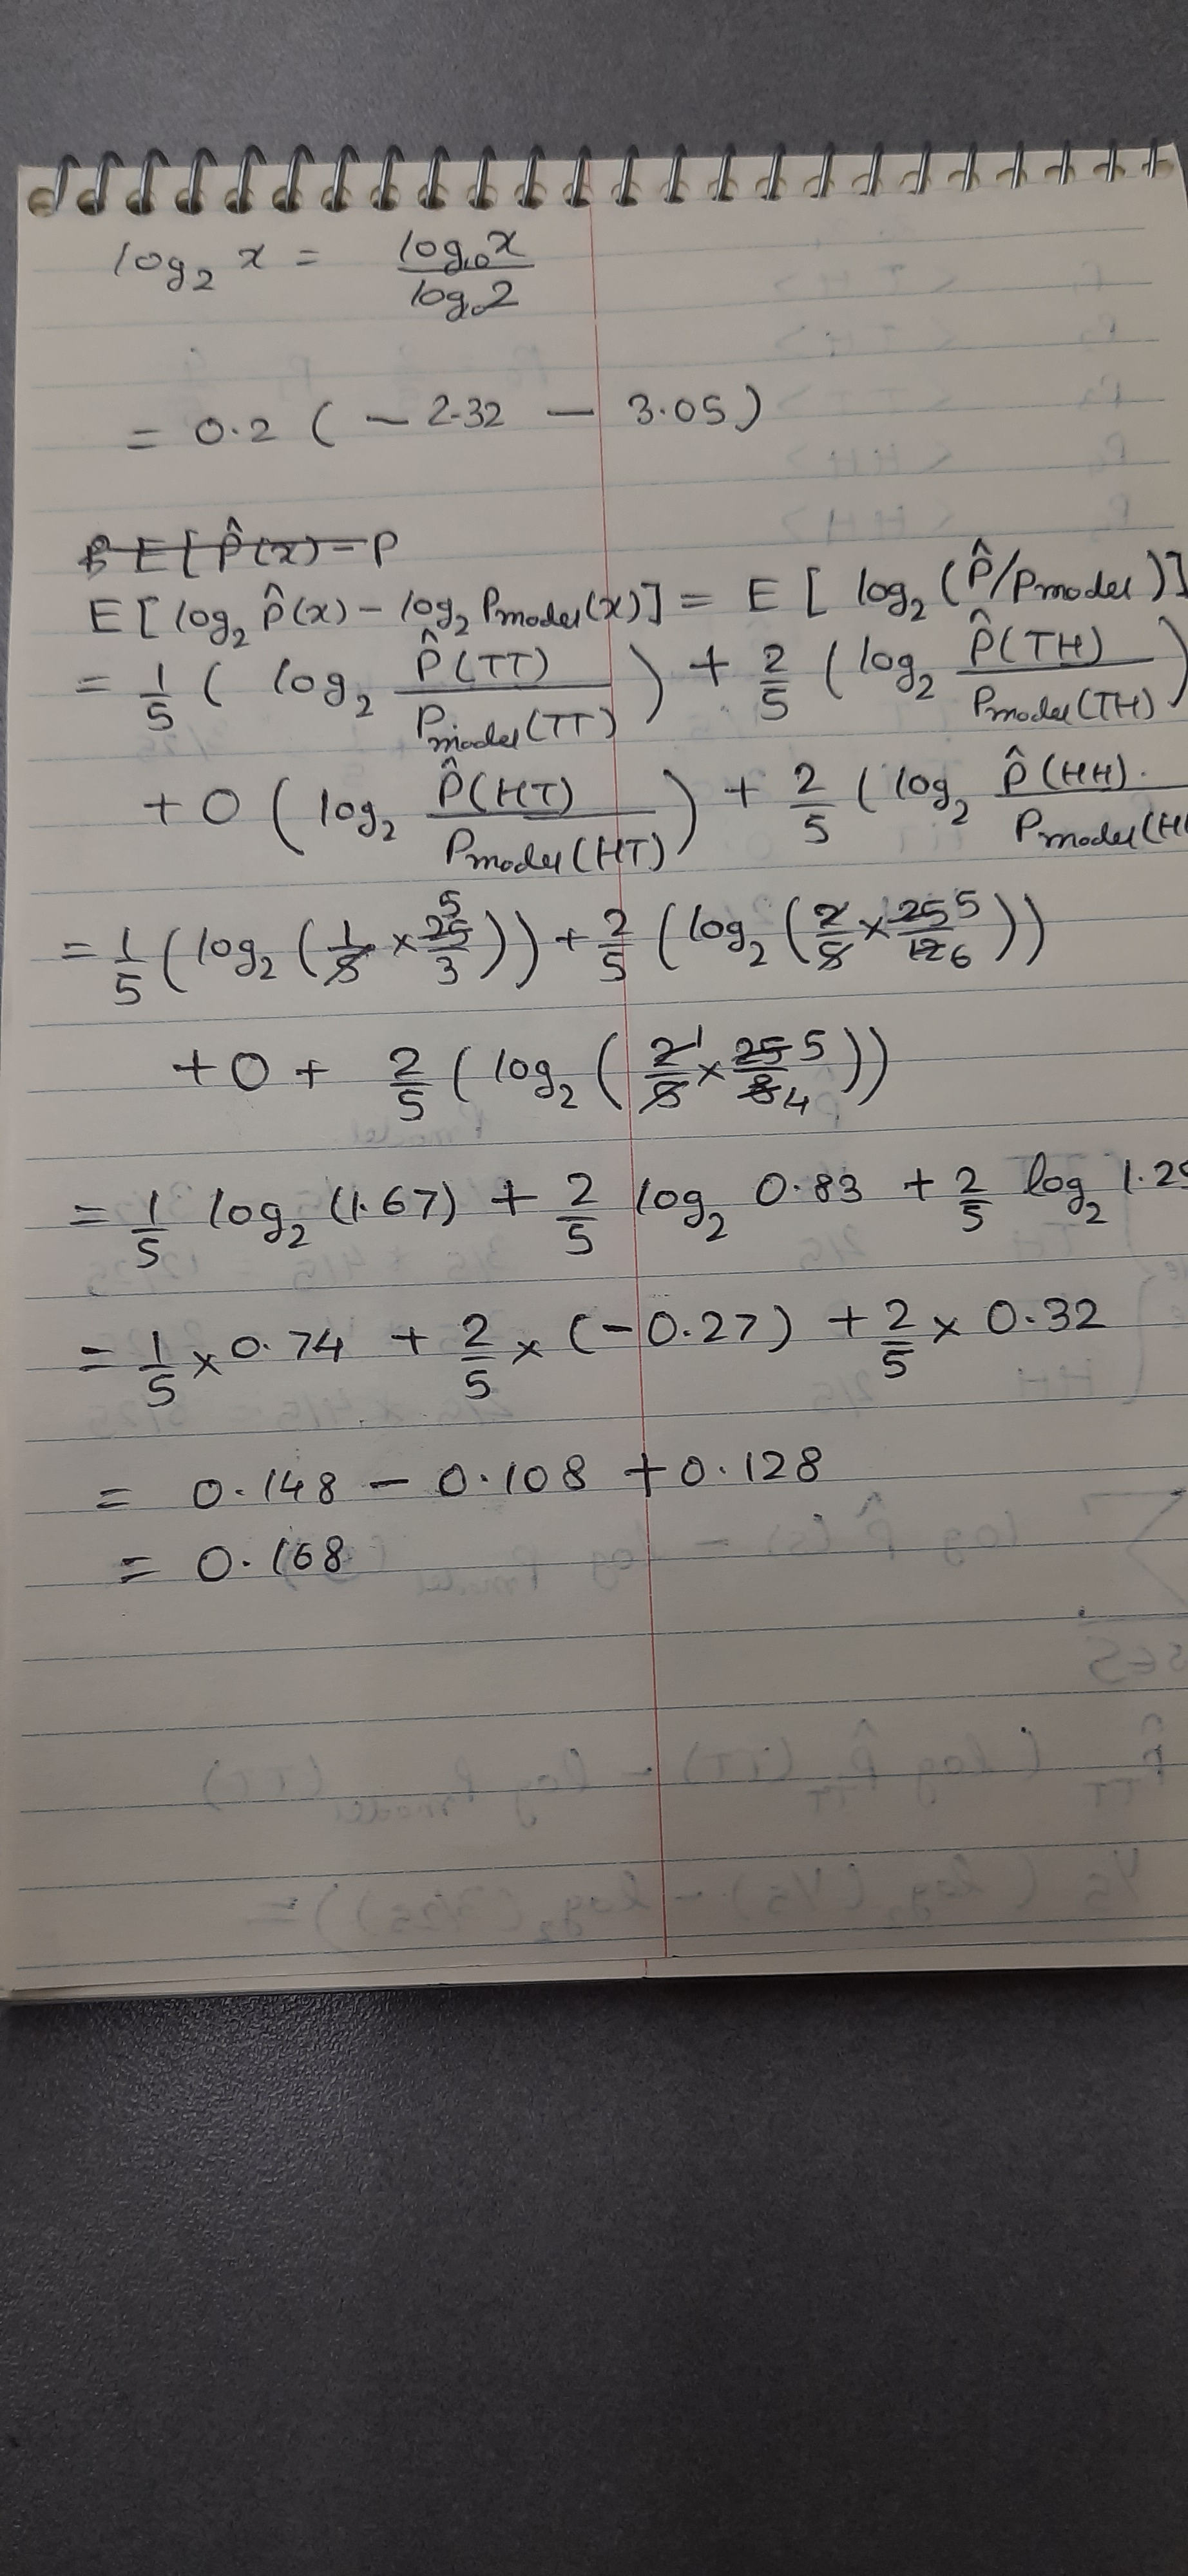 log₂ x = log₁₀x / log₁₀2
= 0.2 ( − 2.32 − 3.05)
E[P̂(x) − P
E[log₂ P̂(x) − log₂ Pmodel(x)] = E [ log₂ (P̂/Pmodel)]
= 1/5 ( log₂ P̂(TT) / Pmodel(TT) ) + 2/5 ( log₂ P̂(TH) / Pmodel(TH) )
+ 0 ( log₂ P̂(HT) / Pmodel(HT) ) + 2/5 ( log₂ P̂(HH) / Pmodel(H
= 1/5 ( log₂ ( 1/5 × 25 5/3 )) + 2/5 ( log₂ ( 2/5 × 25 5/12 6 ))
+ 0 + 2/5 ( log₂ ( 2 1/5 × 25 5/8 4 ))
= 1/5 log₂ (1.67) + 2/5 log₂ 0.83 + 2/5 log₂ 1.25
= 1/5 × 0.74 + 2/5 × (−0.27) + 2/5 × 0.32
= 0.148 − 0.108 + 0.128
= 0.168